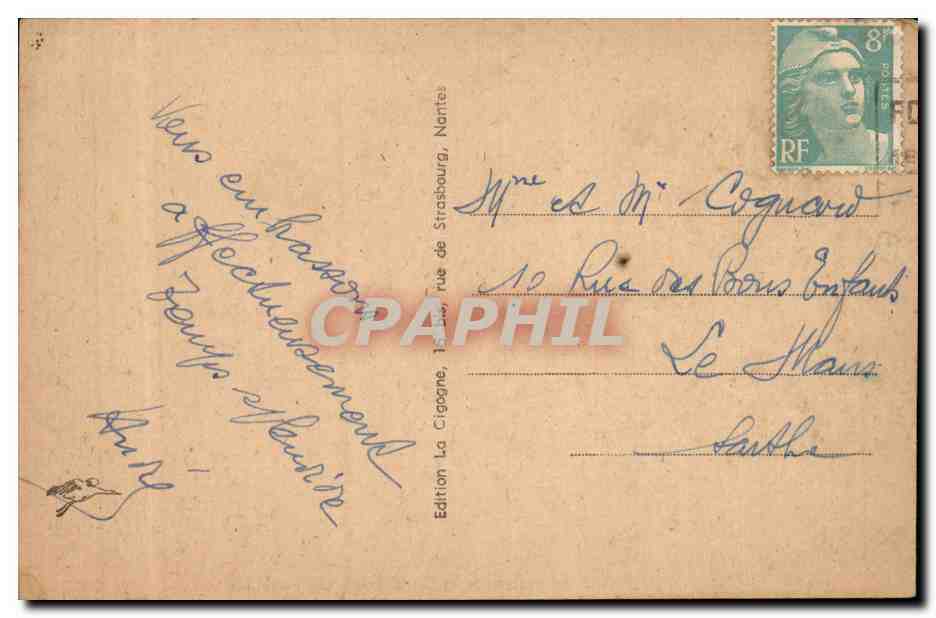 Vous embrassons
affectueusement
Temps splendide
André
Edition La Cigogne, 15 Bis, rue de Strasbourg, Nantes
8F
POSTES
RF
Mme et Mr Cognard
10 Rue des Bons Enfants
Le Mans
Sarthe
CPAPHIL